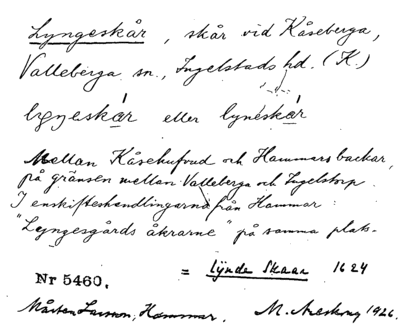 Lyngeskår, skår vid Kåseberga,
Valleberga sn., Ingelstads hd. (K.)
lyŋeskár eller lynéskár
Mellan Kåsehufvud och Hammars backar,
på gränsen mellan Valleberga och Ingelstorp.
I enskifteshandlingarna från Hammar:
"Lyngesgårds åkrarne" på samma plats.
= Lÿnde Skaar 1624
Nr 5460.
Mårten Larsson, Hammar. M. Areskog 1926.